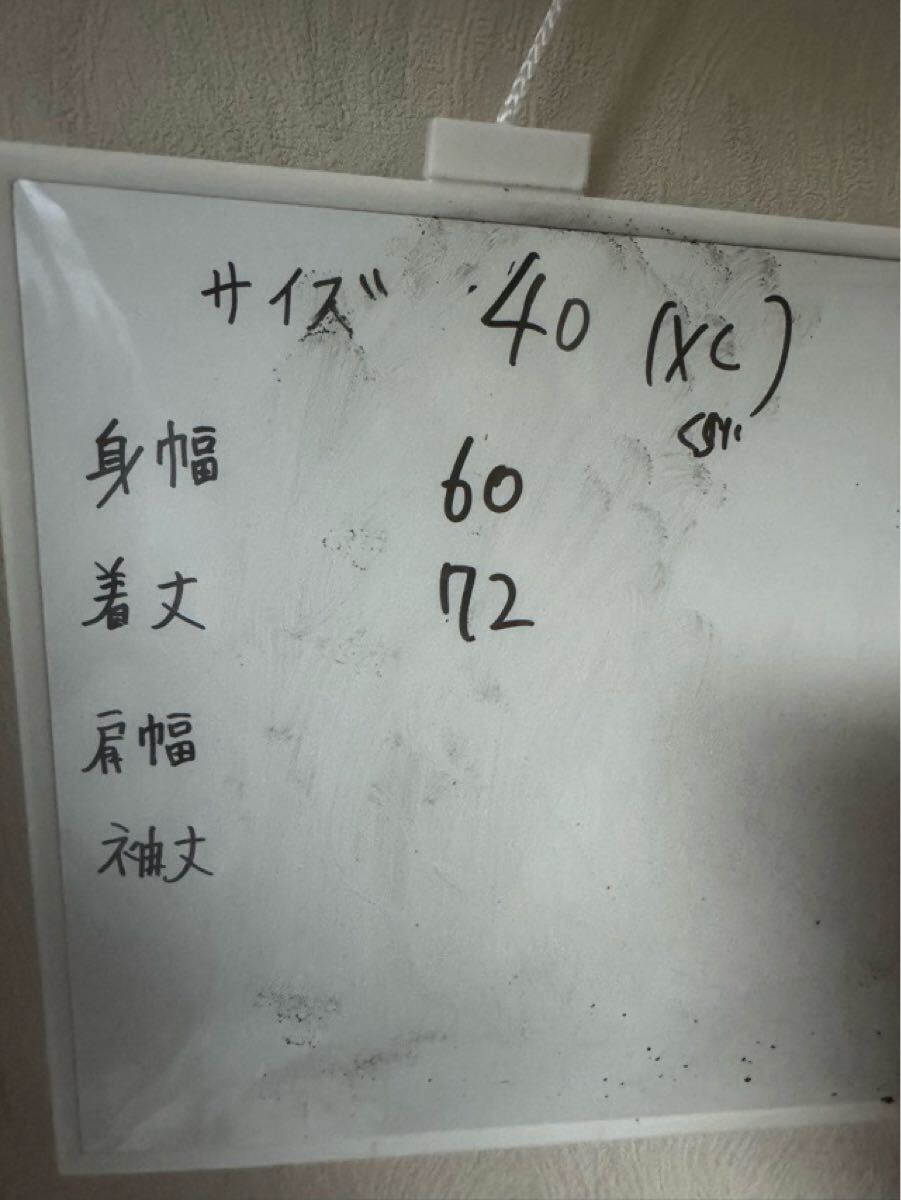 サイズ 40 (XL)
くらい
身幅 60
着丈 72
肩幅
袖丈